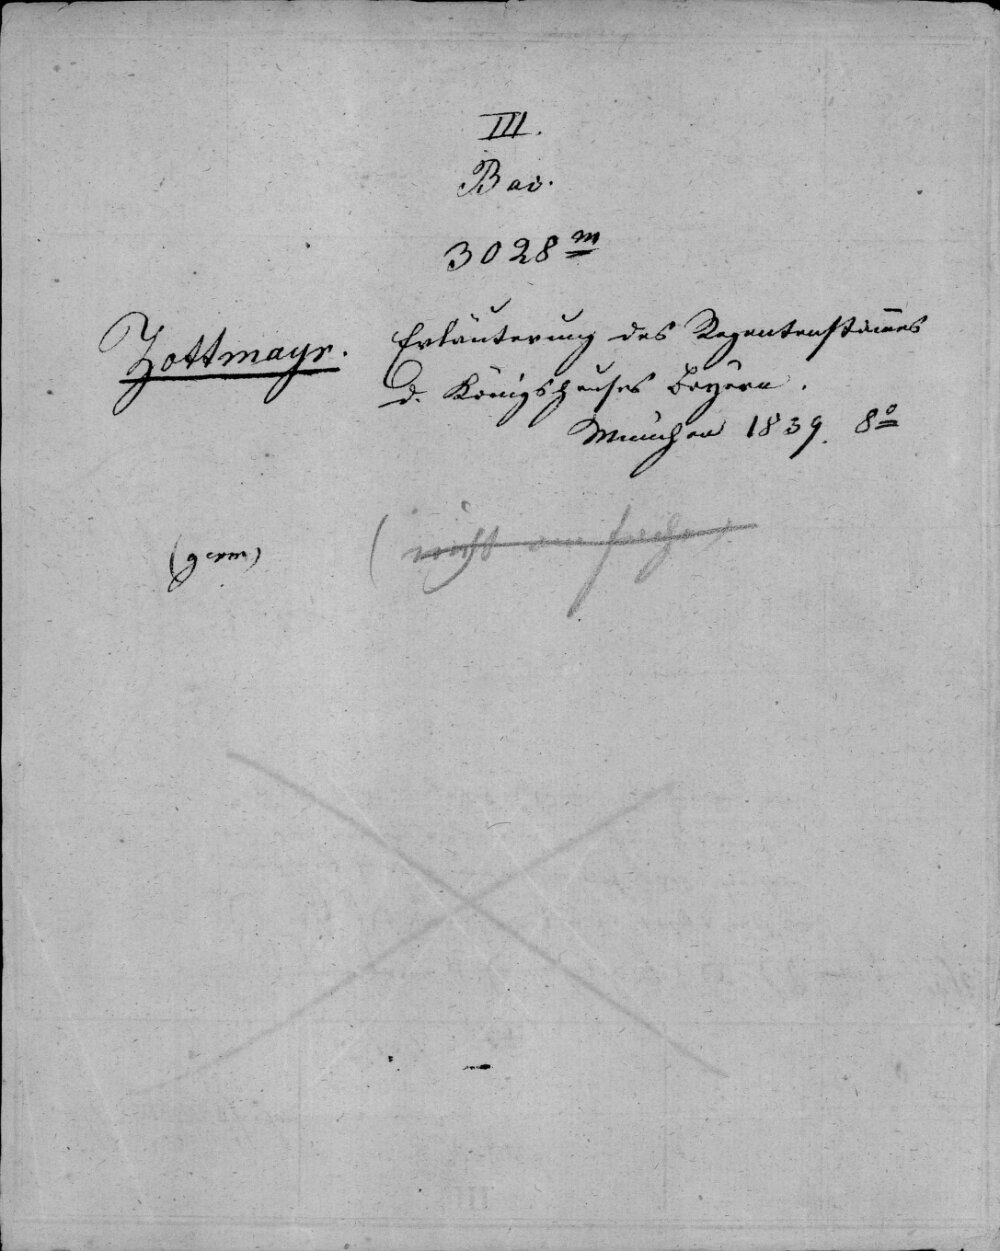 III.
Bav.
3028 m
Zottmayr. Erläuterung des Regentenstam̅es
d. Königshauses Bayern.
München 1839. 8o
(germ) (nicht am Fache)